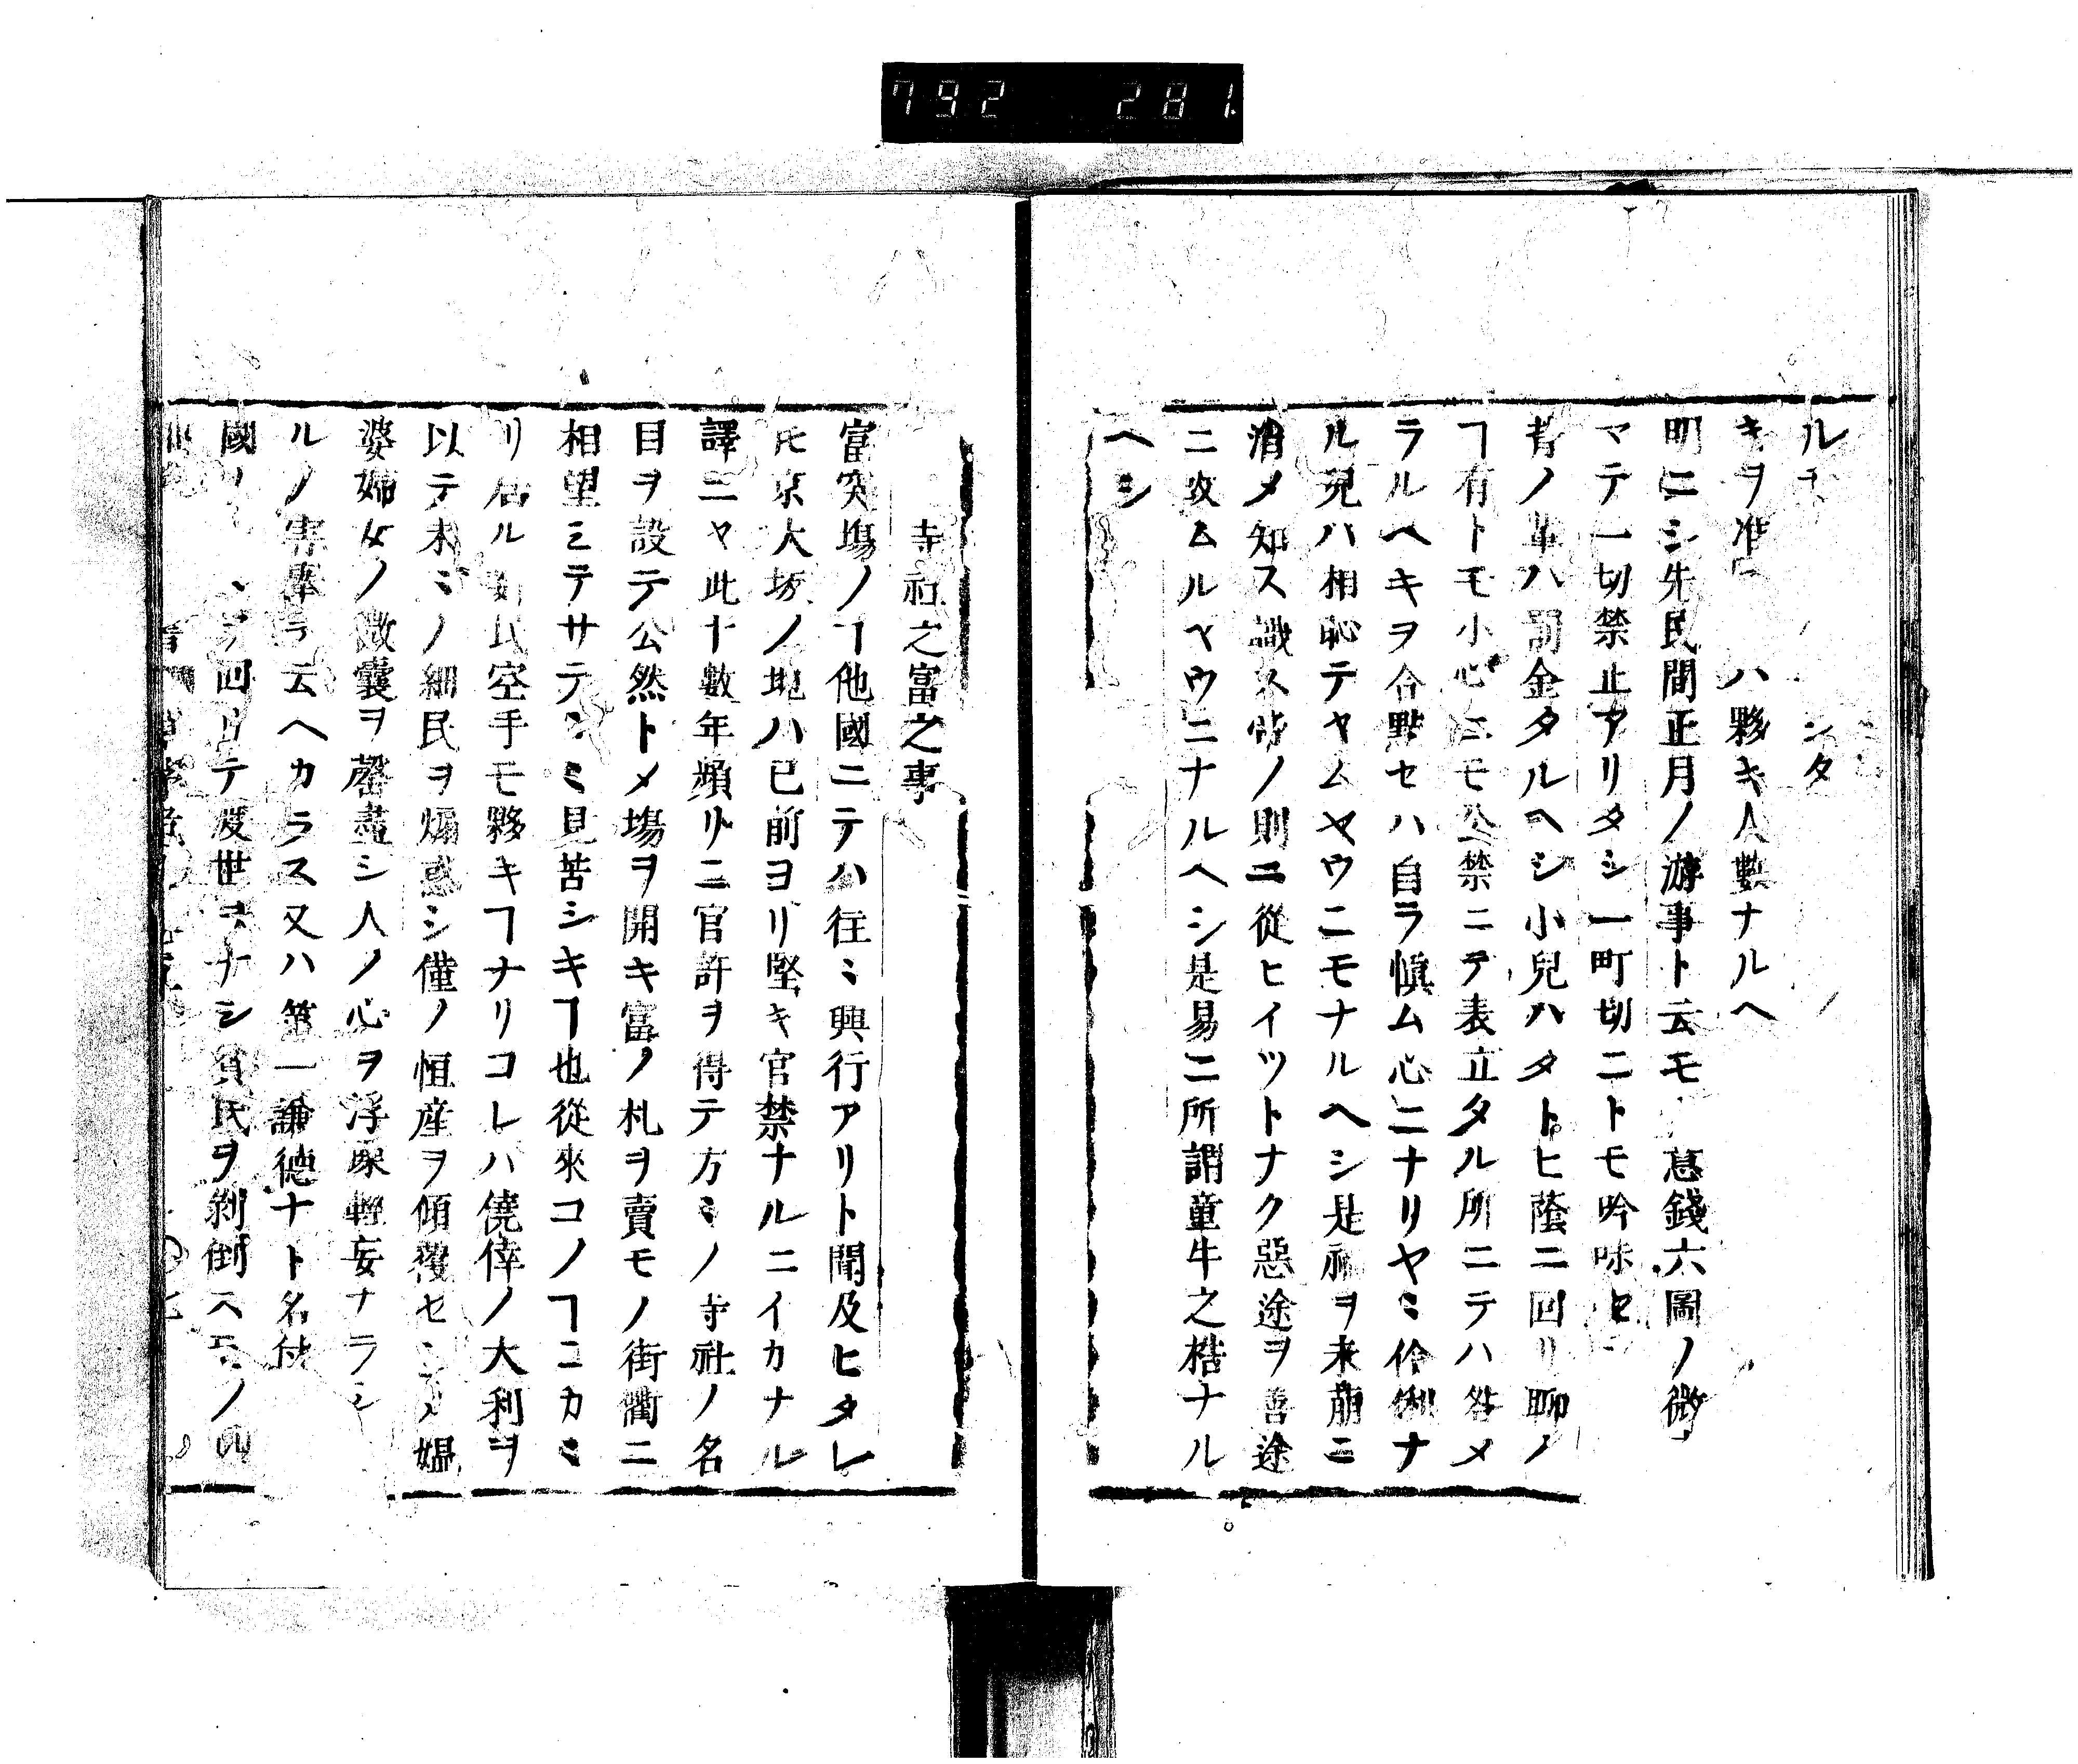 792 281
ル シタ
キヲ准 ハ夥キ人數ナルヘ
明ニシ先民間正月ノ游事ト云モ 錢六圖ノ微
マテ一切禁止アリタシ一町切ニトモ吟味セ
者ノ輩ハ罰金タルヘシ小兒ハタトヒ蔭ニ回リ聊ノ
ヿ有トモ小心ニモ公禁ニテ表立タル所ニテハ咎メ
ラルヘキヲ合點セハ自ラ愼ム心ニナリヤミ伶俐ナ
ル兒ハ相恥テヤムヤウニモナルヘシ是禍ヲ未萠ニ
消メ知ス識ス帝ノ則ニ從ヒイツトナク惡途ヲ善途
ニ攻ムルヤウニナルヘシ是易ニ所謂童牛之梏ナル
ヘシ
寺社之富之事
富突塲ノヿ他國ニテハ往ミ興行アリト聞及ヒタレ
𪜈京大坂ノ地ハ已前ヨリ堅キ官禁ナルニイカナル
譯ニヤ此十數年頻リニ官許ヲ得テ方ミノ寺社ノ名
目ヲ設テ公然トメ塲ヲ開キ富ノ札ヲ賣モノ街衢ニ
相望ミテサテミミ見苦シキヿ也從來コノヿニカミ
リ居ル奸民空手モ夥キヿナリコレハ僥倖ノ大利ヲ
以テ末ミノ細民ヲ煽惑シ僅ノ恒産ヲ傾覆セシメ媼
婆婦女ノ微囊ヲ罄盡シ人ノ心ヲ浮躁輕妄ナラシ
ルノ害擧ラ云ヘカラス又ハ第一謙德ナト名付
國ノ ヲ回リテ渡世ヲナシ貧民ヲ剝倒スモノ